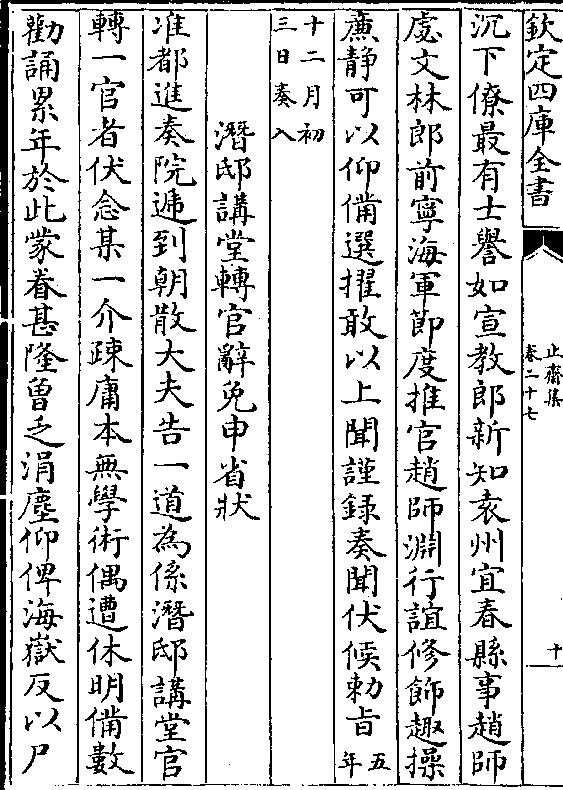 欽定四庫全書
止齋集
卷二十七
十
沉下僚最有士譽如宣教郎新知袁州宜春縣事趙師
處文林郎前寧海軍節度推官趙師淵行誼修飾趣操
亷静可以仰備選擢敢以上聞謹録奏聞伏候勅旨五年
十二月初三日奏入
潛邸講堂轉官辭免申省狀
准都進奏院遞到朝散大夫告一道為係潛邸講堂官
轉一官者伏念某一介疎庸本無學術偶遭休明備數
勸誦累年於此蒙眷甚隆曾乏涓塵仰俾海嶽反以尸